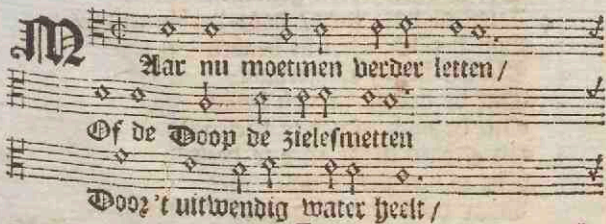 MAar nu moetmen verder letten/
Of de Doop de zielesmetten
Door 't uitwendig water heelt/